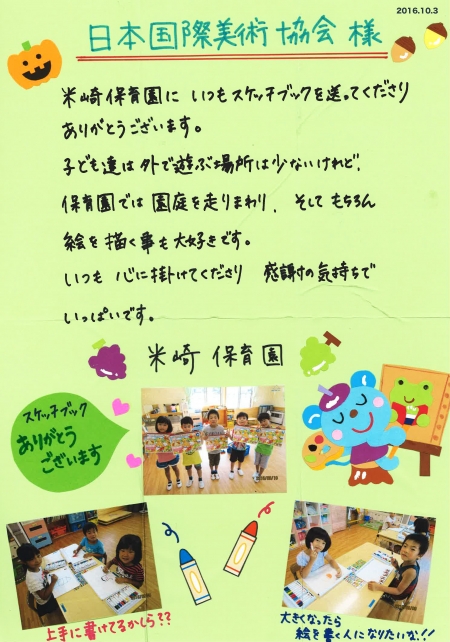 2016.10.3
日本国際美術協会 様
米崎保育園に いつもスケッチブックを送ってくださり
ありがとうございます。
子ども達は外で遊ぶ場所は少ないけれど、
保育園では園庭を走りまわり、そしてもちろん
絵を描く事も大好きです。
いつも 心に掛けてくださり 感謝の気持ちで
いっぱいです。
米崎 保育園
スケッチブック
ありがとう
ございます
上手に書けてるかしら??
大きくなったら
絵を書く人になりたいな!!